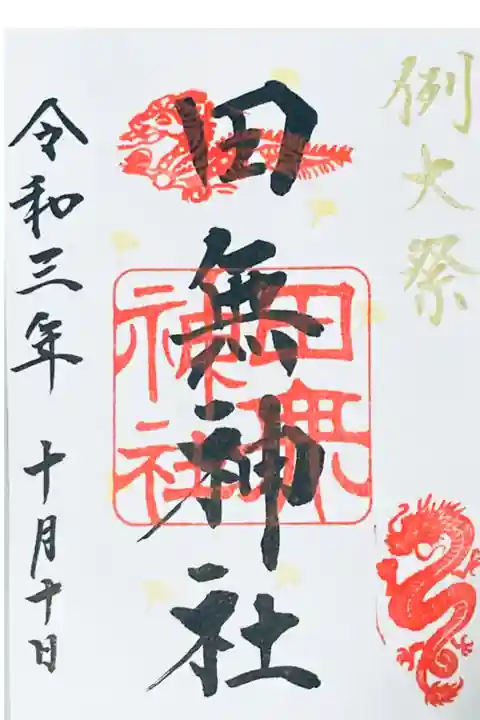 例大祭
田無神社
田無
神社
令和三年 十月十日